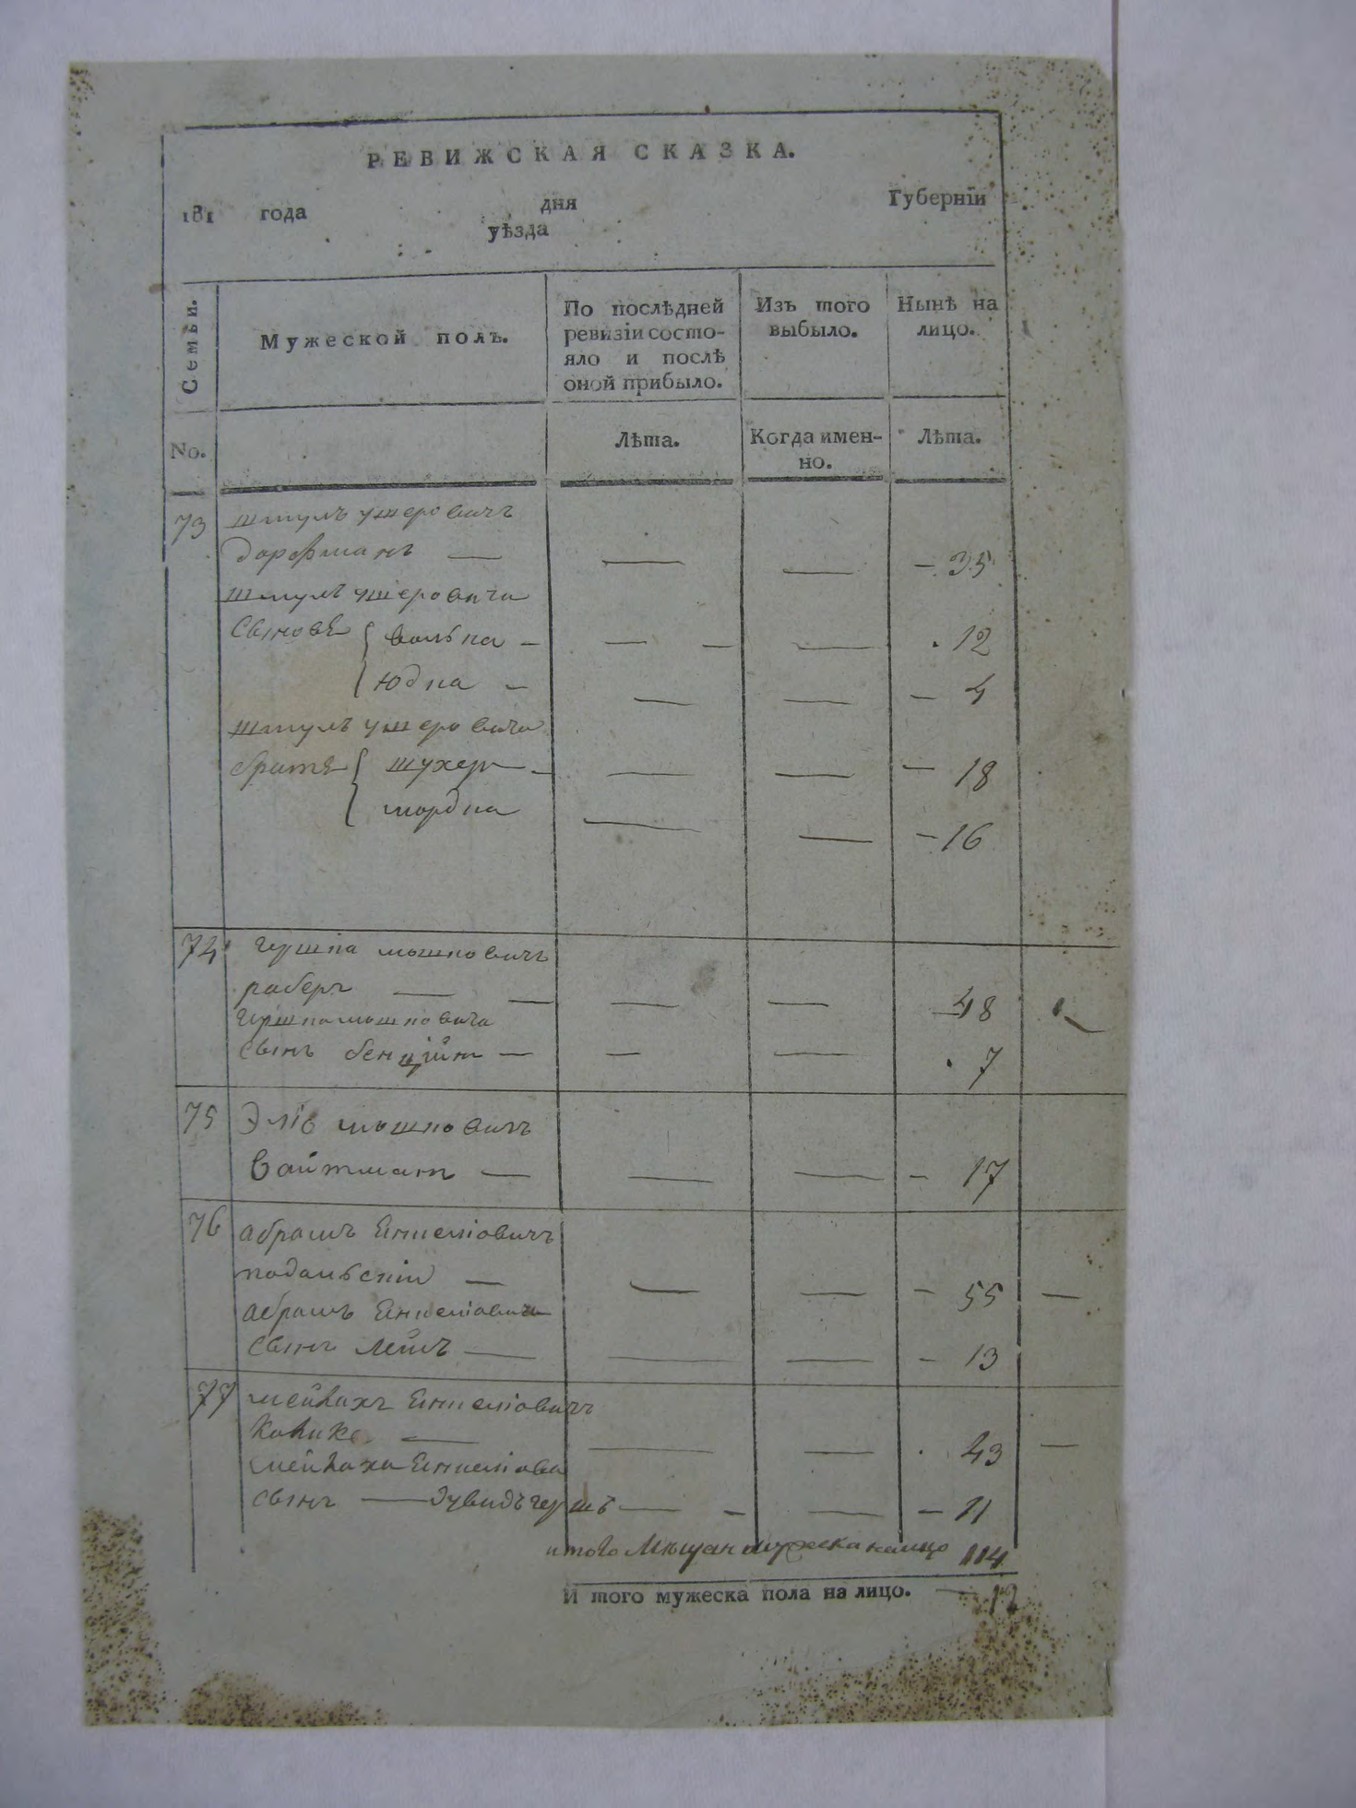 РЕВИЖСКАЯ СКАЗКА.
181 года дня Губерніи
уѣзда
Семьи.
Мужеской полъ.
По послѣдней ревизіи состо-
яло и послѣ
оной прибыло.
Изъ того
выбыло.
Нынѣ на
лицо.
No.
Лѣта.
Когда имен-
но.
Лѣта.
73 шмуль ушеровичъ
дорфманъ — — — – 35
шмуль ушеровича
Сынове { волька – — – — 12
юдка – — — – 4
шмуль ушеровича
братя { шухер – — — – 18
мордка — — – 16
74 гершка мошковичъ
раберъ — — — — 48
гершка мошковича
сынъ бенційн — — — 7
75 Эліе мошковичъ
Вайтманъ — — — – 17
76 абрамъ Енкеліовичъ
подольскій — — — – 55 —
абрамъ Енкеліовича
сынъ лейбъ — — — – 13
77 мейлахъ Енкеліовичъ
Колик — — — 43 —
мейлаха Енкеліова
сынъ — дувидъ гершъ — – — – 11
итого мѣщан мужеска налицо 114
И того мужеска пола на лицо. — 12